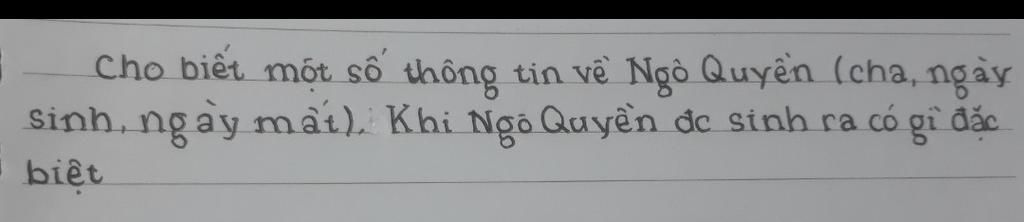 Cho biết một số thông tin về Ngô Quyền (cha, ngày
sinh, ngày mất). Khi Ngô Quyền đc sinh ra có gì đặc
biệt